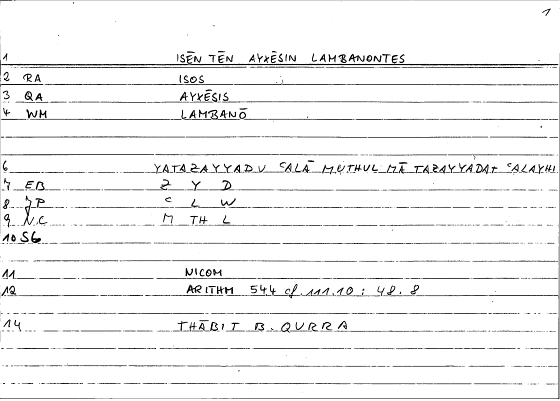 1
1 ISĒN TĒN AYXĒSIN LAMBANONTES
2 RA ISOS
3 QA AYXĒSIS
4 WM LAMBANŌ
6 YATAZAYYADU ʿALĀ MUTHUL MĀ TAZAYYADAT ʿALAYHI
7 EB Z Y D
8 JP ʿ L W
9 NC M TH L
10 SG
11 NICOM
12 ARITHM 544 cf. 111.10 : 48.8
14 THĀBIT B. QURRA